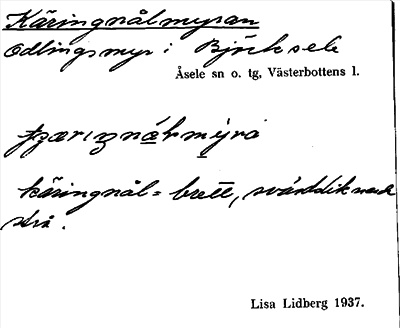 Käringnålmyran
Odlingsmyr i Björksele
Åsele sn o. tg, Västerbottens l.
käringnål = brett, svårddiknande
strå.
Lisa Lidberg 1937.